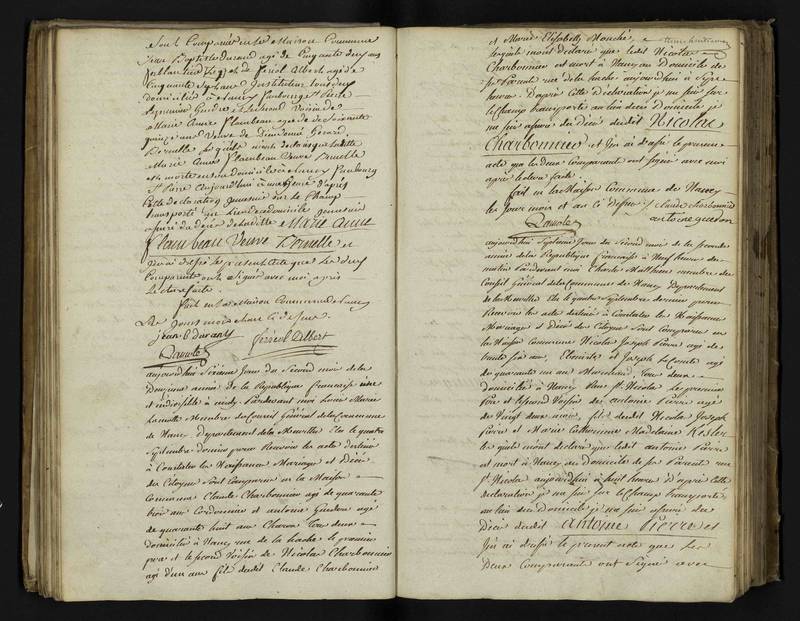 sont Comparu en la Maison Commune
Jean Baptiste Durand agé de Cinquante deux ans
ferblantier et Fériol Albert agé de
Cinquante ans Instituteur tous deux
domiciliés à Nancy faubourg St Pierre
le premier Gendre et le second Voisin de
Marie Anne Flambeau agée de soixante
quinze ans Veuve de Dieudonné Gérard
Dornelle lesquels mont déclaré que ladite
Marie Anne Flambeau Veuve Dornelle
est morte en son domicile à Nancy faubourg
St Pierre aujourdhui à une heure d'après
cette déclaration je me suis sur le Champ
transporté au lieu de ce domicile je me suis
assuré du décès de ladite Marie Anne
Flambeau Veuve Dornelle et
j'en ai dressé le présent acte que les deux
Comparants ont Signé avec moi après
lecture faite
fait en la Maison Commune de Nancy
les jours mois et an ci dessus
jean b Durand fériol Albert
aujourdhui Sixieme Jour du Second mois de la
Deuxieme année de la République française une
et indivisible à midy Pardevant moi Louis Marie
Lamolle Membre du Conseil Général de la Commune
de Nancy Département de la Meurthe Elu le quatre
septembre dernier pour Recevoir les actes destinés
à Constater les Naissances Mariages et Décès
des Citoyens sont Comparu en la Maison
Commune Claude Charbonnier agé de quarante
trois ans Cordonnier et antoine Guedon agé
de quarante huit ans Charon tous deux
domiciliés à Nancy rue de la hache le premier
pere et le second Voisin de Nicolas Charbonnier
agé d'un an fils dudit Claude Charbonnier
et Marie Elisabeth Mouché
lesquels mont déclaré que ledit Nicolas
Charbonnier est mort à Nancy au Domicile de
ses Parents rue de la hache aujourdhui à Sept
heures D'après Cette Déclaration je me suis sur
le Champ transporté au lieu dudit Domicile je
me suis assuré du Décès dudit Nicolas
Charbonnier et j'en ai Dressé le present
acte que les deux Comparants ont signé avec moi
après lecture faite
fait en la Maison Commune de Nancy
les Jour mois et an Ci dessus claude charbonnier
antoine guedon
aujourdhui Septieme Jour du Second mois de la seconde
année de la République française à Neuf heures du
matin Pardevant moi Charles Matthieu membre du
Conseil Général de la Commune de Nancy Département
de la Meurthe Elu le quatre Septembre dernier pour
Recevoir les actes destinés à Constater les Naissances
Mariages et Décès des Citoyens Sont Comparu en
la Maison Commune Nicolas Joseph Pierre agé de
trente six ans Ebeniste et Joseph LeComte agé
de quarante un ans Marchand tous deux
Domiciliés à Nancy Rue St Nicolas le premier
Pere et le second Voisin de Antoine Pierre agé
de Vingt deux mois fils dudit Nicolas Joseph
Pierre et Marie Catherine Madelaine Kesler
lesquels mont déclaré que ledit antoine Pierre
est mort à Nancy au Domicile de ses Parents rue
St Nicolas aujourdhui à huit heures d'après Cette
declaration je me suis sur le Champ transporté
au lieu dudit Domicile je me suis assuré du
Décès dudit Antoine Pierre et
j'en ai dressé le present acte que les
Deux Comparants ont Signé avec